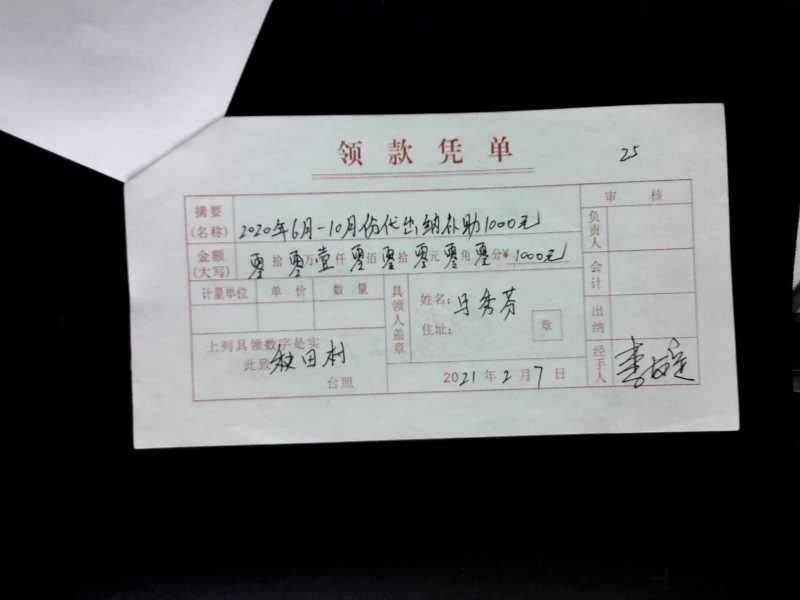 领款凭单
25
摘要
(名称) 2020年6月-10月份代出纳补助1000元
审核
负责人
金额
(大写) 零拾零万壹仟零佰零拾零元零角零分¥1000元
会计
计量单位 单价 数量
具领人盖章
姓名: 马秀芬
住址:
章
出纳
上列具领数字是实
此致 秋田村
台照
2021年2月7日
经手人